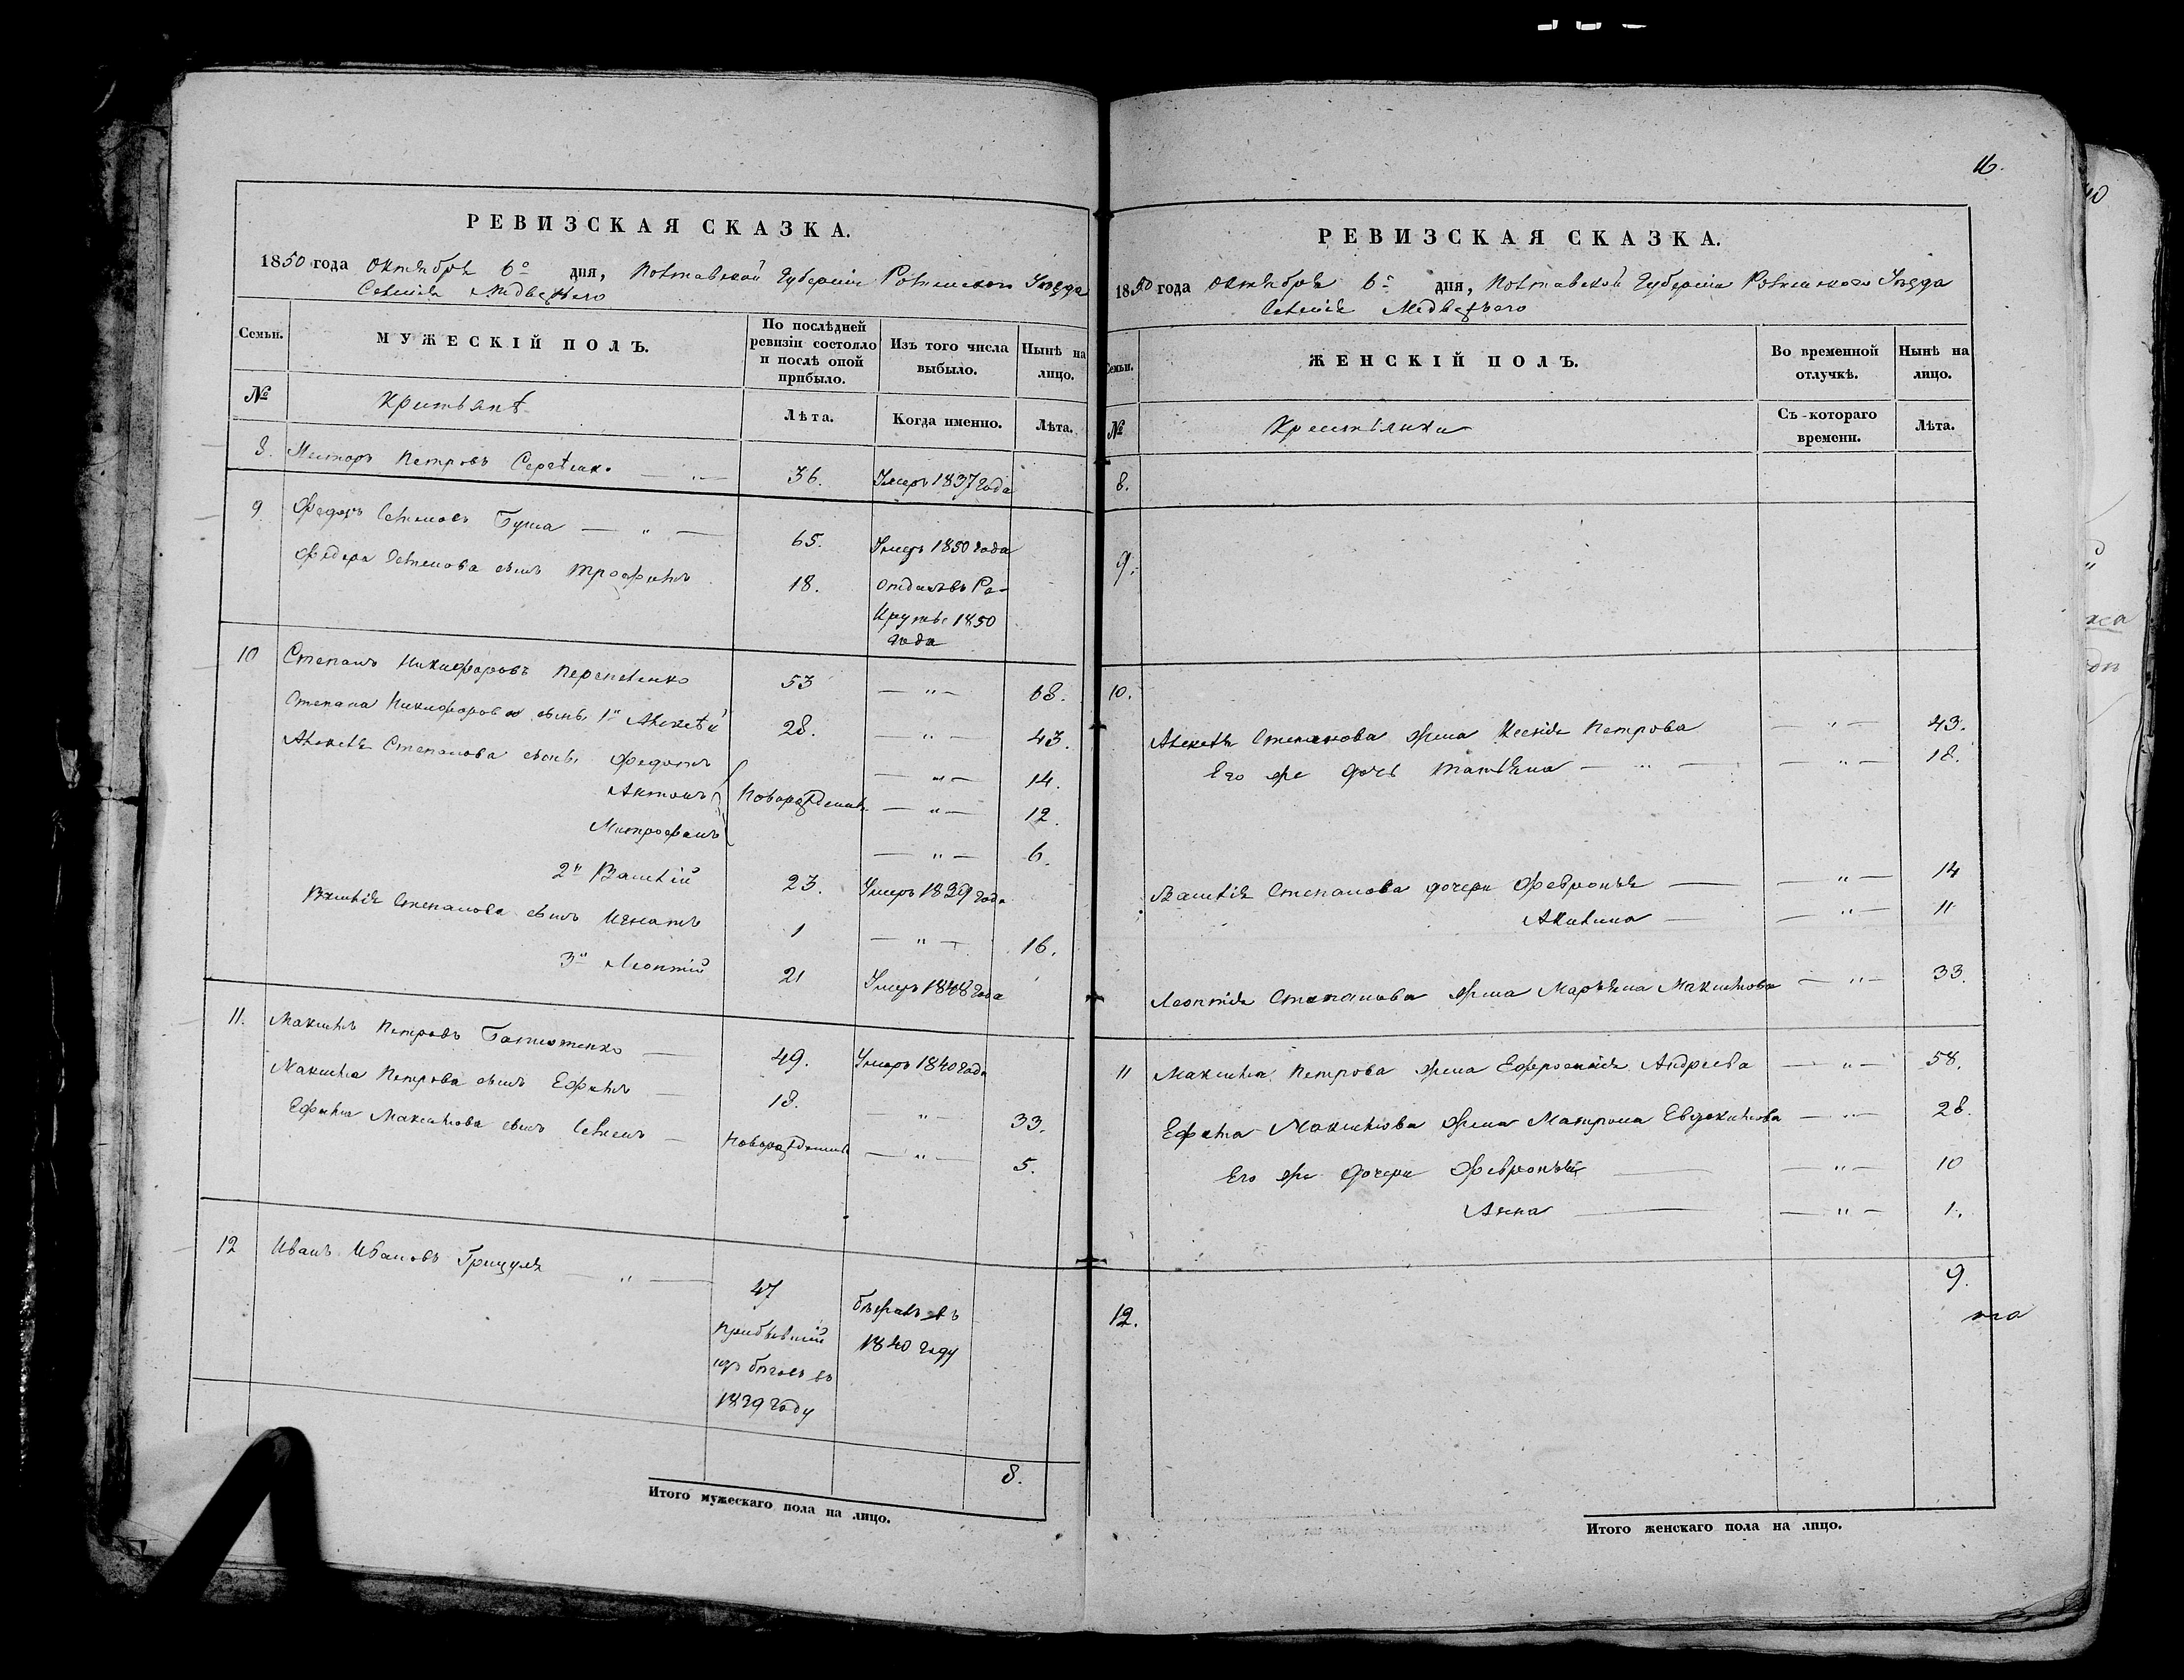 16.
РЕВИЗСКАЯ СКАЗКА.
1850 года Октября 6го дня, Полтавской Губерніи Роменского Уѣзда
Селенія Медвежого
Семьи. МУЖЕСКІЙ ПОЛЪ. По послѣдней ревизіи состояло и послѣ оной прибыло. Изъ того числа выбыло. Нынѣ на лицо.
№ Крестьянѣ Лѣта. Когда именно. Лѣта.
8. Нестеръ Петровъ 36. Умеръ 1837 года
9 Федоръ Семеновъ Буша — " — 65. Умеръ 1850 года
Федора Семенова сынъ Трофимъ 18. отданъ въ Рекруты 1850 года
10 Степанъ Никифоровъ Перепеленко 53 — " — 68.
Степана Никифорова сынъ 1й Алексѣй 28. — " — 43.
Алексѣя Степанова сыны Федотъ — " — 14.
Антонъ Новорожденны — " — 12.
Митрофанъ — " — 6.
2й Василій 23. Умеръ 1839 года
Василія Степанова сынъ Игнатъ 1 — " — 16.
3й Леонтій 21 Умеръ 1848 года
11. Максимъ Петровъ — 49. Умеръ 1840 года
Максима Петрова сынъ Ефимъ — 18. — " — 33.
Ефима Максимова сынъ Семенъ — Новорожденный — " — 5.
12 Иванъ Ивановъ Грицуля — " — 47 бежалъ въ
прибывшій 1840 году
изъ бегов въ
1839 году
8.
Итого мужескаго пола на лицо.
РЕВИЗСКАЯ СКАЗКА.
1850 года Октября 6го дня, Полтавской Губерніи Роменского Уѣзда
Селенія Медвежъего
Семьи. ЖЕНСКІЙ ПОЛЪ. Во временной отлучкѣ. Нынѣ на лицо.
№ Крестьянки Съ котораго времени. Лѣта.
8.
9.
10.
Алексѣя Степанова жена Ксенія Петрова — " — 43.
Его же дочь Татьяна — " — — " — 18.
Василія Степанова дочери Февронья — — " — 14
Акилина — — " — 11
Леонтія Степанова жена Марьяна Максимова — " — 33.
11 Максима Петрова жена Ефросинія Андреева — " — 58.
Ефима Максимова жена Матрона Евдокимова — " — 28.
Его же дочери Февронья — — " — 10
Анна — — " — 1.
9.
12.
Итого женскаго пола на лицо.